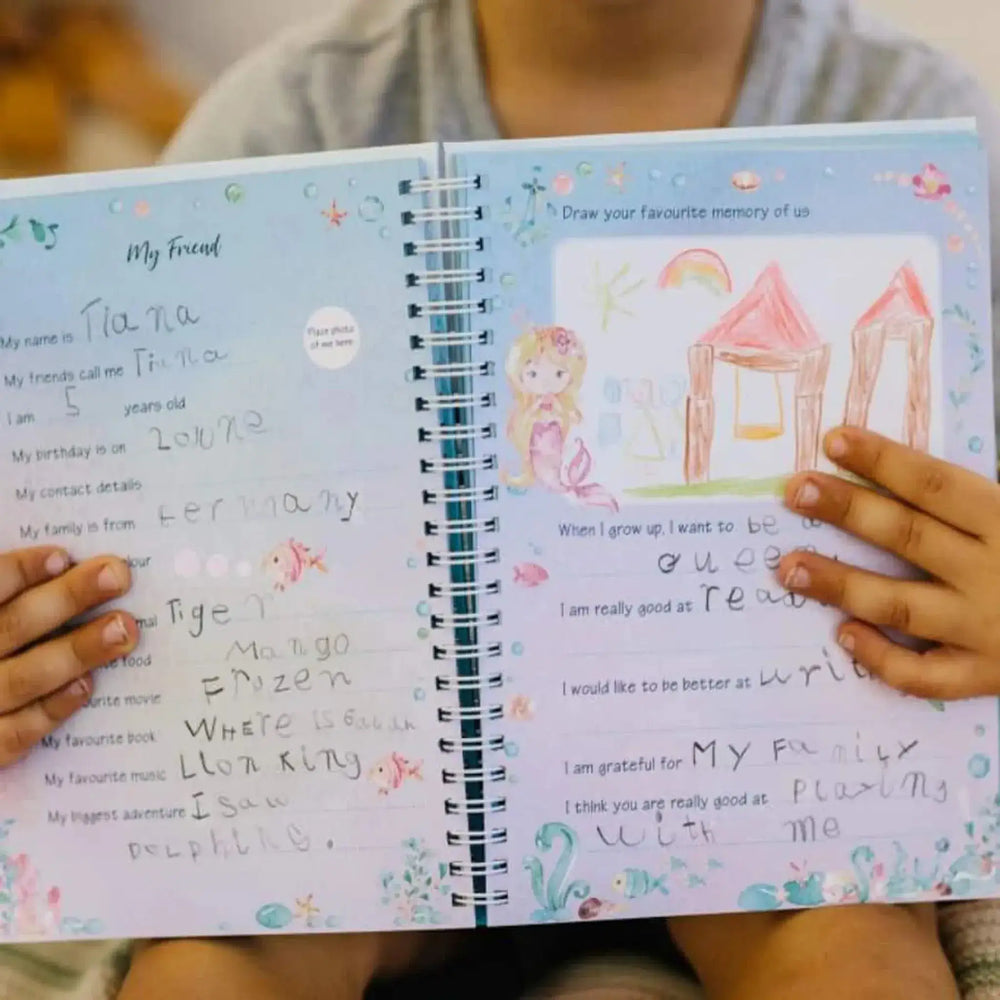 My Friend
My name is Tiana
Place photo
of me here
My friends call me Tiana
I am 5 years old
My birthday is on
My contact details
My family is from Germany
our
mal Tiger
food Mango
urite movie Frozen
My favourite book WHEre is
My favourite music Lion King
My biggest adventure I saw
DOLPHINS.
Draw your favourite memory of us
When I grow up, I want to be a
queen
I am really good at read
I would like to be better at writ
I am grateful for MY FamiLY
I think you are really good at PLaYiNg
WiTH me